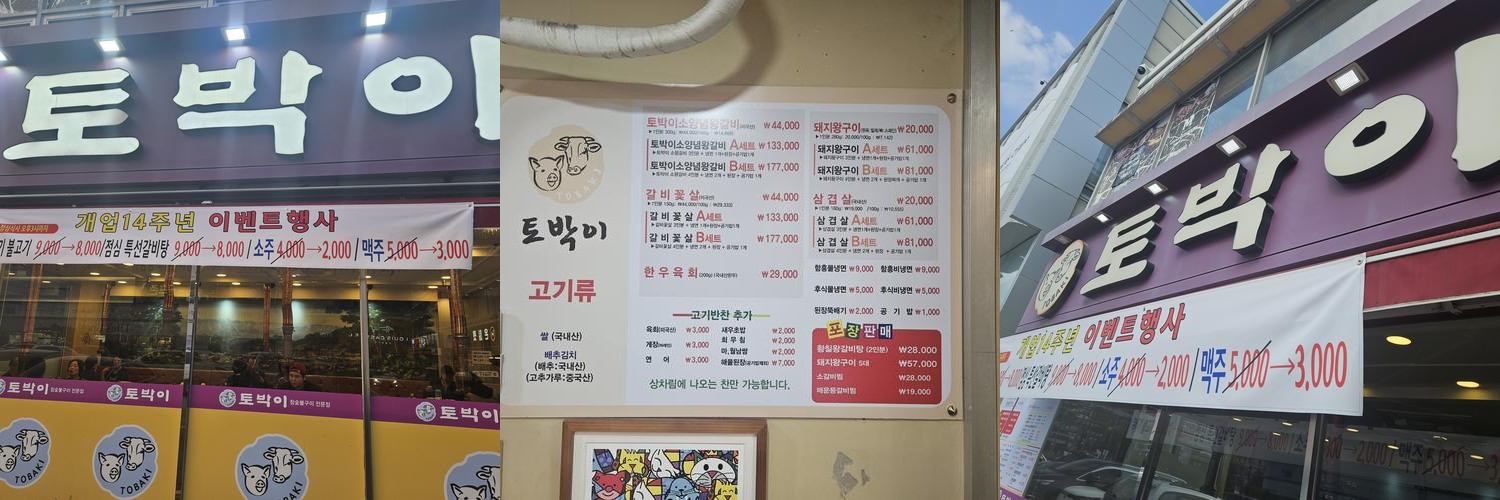 토박이
개업14주년 이벤트행사
불고기 9,000→8,000/점심 특선갈비탕 9,000→8,000/소주4,000→2,000/맥주5,000→3,000
토박이 참숯불구이 전문점
토박이 참숯불구이 전문점
토박이
TOBAKI
TOBAKI
TOBAKI
토박이
고기류
쌀 (국내산)
배추김치
(배추:국내산)
(고추가루:중국산)
토박이소양념왕갈비(미국산) ₩44,000
토박이소양념왕갈비 A세트 ₩133,000
토박이소양념왕갈비 B세트 ₩177,000
갈비꽃살(미국산) ₩44,000
갈비꽃살 A세트 ₩133,000
갈비꽃살 B세트 ₩177,000
한우육회(200g) (국내산한우) ₩29,000
고기반찬 추가
육회(미국산) ₩3,000
게장 ₩3,000
연어 ₩3,000
새우초밥 ₩2,000
회무침 ₩2,000
마,월남쌈 ₩2,000
해물된장 ₩7,000
상차림에 나오는 찬만 가능합니다.
돼지왕구이 ₩20,000
돼지왕구이 A세트 ₩61,000
돼지왕구이 B세트 ₩81,000
삼겹살(국내산) ₩20,000
삼겹살 A세트 ₩61,000
삼겹살 B세트 ₩81,000
함흥물냉면 ₩9,000 함흥비냉면 ₩9,000
후식물냉면 ₩5,000 후식비냉면 ₩5,000
된장뚝배기 ₩2,000 공기밥 ₩1,000
포장판매
황칠왕갈비탕 (2인분) ₩28,000
돼지왕구이 5대 ₩57,000
소갈비찜 ₩28,000
매운등갈비찜 ₩19,000
토박이
TOBAKI
개업14주년 이벤트행사
소주4,000→2,000/맥주5,000→3,000